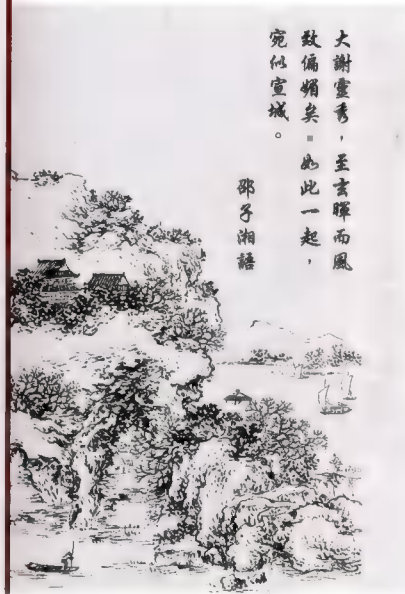 大謝靈秀，至玄暉而風
致偏媚矣。如此一起，
宛似宣城。
邵子湘語